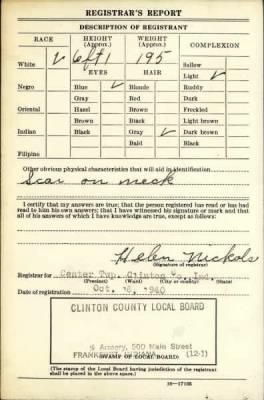 REGISTRAR'S REPORT
DESCRIPTION OF REGISTRANT
RACE HEIGHT (Approx.) WEIGHT (Approx.) COMPLEXION
White ✓ 6ft 1 195 Sallow
EYES HAIR Light ✓
Negro Blue ✓ Blonde Ruddy
Gray Red Dark
Oriental Hazel Brown Freckled
Brown Black Light brown
Indian Black Gray ✓ Dark brown
Bald Black
Filipino
Other obvious physical characteristics that will aid in identification
Scar on neck
I certify that my answers are true; that the person registered has read or has had
read to him his own answers; that I have witnessed his signature or mark and that
all of his answers of which I have knowledge are true, except as follows:
Helen Nickols
(Signature of registrar)
Registrar for Center Twp. Clinton Co., Ind.
(Precinct) (Ward) (City or county) (State)
Date of registration Oct. 16, 1940
CLINTON COUNTY LOCAL BOARD
% Armory, 500 Main Street
FRANKFORT, INDIANA (12-1)
(STAMP OF LOCAL BOARD)
(The stamp of the Local Board having jurisdiction of the registrant
shall be placed in the above space.)
16—17105